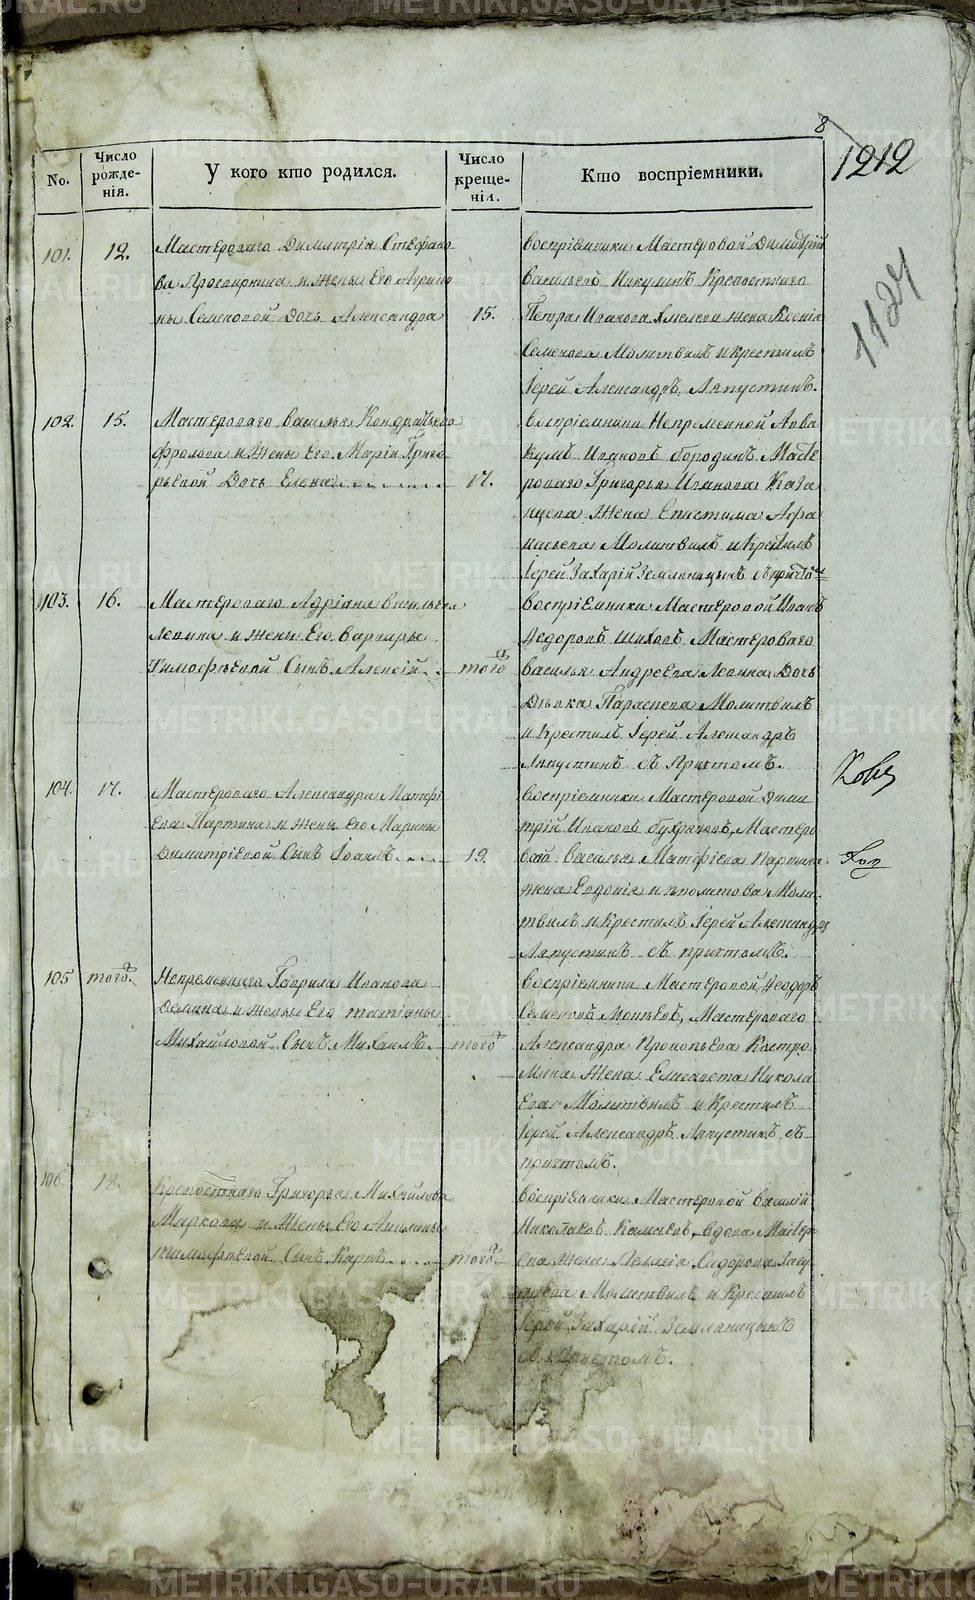 8
1212
1124
No.
Число рожденія.
У кого кто родился.
Число крещенія.
Кто воспріемники.
101. 12.
Мастероваго Димитрія Стефано
ва Просвирнина и жены Его Агрипи
ны Семеновой Дочь Александра 15.
воспріемники Мастеровой Димитрій
Васильевъ Никулинъ Крепостнаго
Петра Иванова Хмелева жена Ксенія
Семенова Молитвилъ и крестилъ
Іерей Александръ Ляпустинъ.
102. 15.
Мастероваго Василья Кондратьева
Фролова и жены Его Маріи Григо
рьевой Дочь Елена 17.
воспріемники Непременной Авва
кумъ Ивановъ Бородинъ Масте
роваго Григорья Иванова Каза
нцева жена Епистима Афа
насьева Молитвилъ и Крестилъ
Іерей Захарій Земляницынъ съ причто
103. 16.
Мастероваго Адріана Васильева
Левина и жены Его Варвары
Тимофѣевой Сынъ Алексій того
воспріемники Мастеровой Иванъ
Федоровъ Шиховъ Мастероваго
Василья Андреева Левина Дочь
Дѣвка Параскева Молитвилъ
и Крестилъ Іерей Александръ
Ляпустинъ съ Причтомъ.
104. 17.
Мастероваго Александра Матфі
ева Партина и жены его Марины
Димитріевой Сынъ Іоаннъ 19.
воспріемники Мастеровой Дими
трій Ивановъ Мастеро
вой Василья Матфіева Партина
жена Евдокія Моли
твилъ и Крестилъ Іерей Александръ
Ляпустинъ съ причтомъ.
105 того.
Непременнаго Гаврила Иванова
Демина и жены Его Татіаны
Михайловой Сынъ Михаилъ того
воспріемники Мастеровой Феодоръ
Семеновъ Мастероваго
Александра Прокопьева Костро
мина жена Елисавета Никола
ева Молитвилъ и Крестилъ
Іерей Александръ Ляпустинъ съ
причтомъ.
106. 18.
Крепостнаго Григорья Михайлова
Маркова и жены Его Акилины
Тимофѣевой Сынъ Карпъ того.
воспріемники Мастеровой Василій
Николаевъ вдова Мастер
жена Пелагія Сидорова
Молитвилъ и Крестилъ
Іерей Захарій Земляницынъ
съ Причтомъ.
METRIKI.GASO-URAL.RU